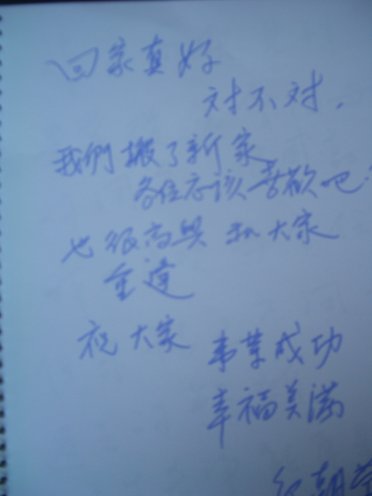 回家真好
对不对,
我們搬了新家
各位应该喜欢吧?
也很高興和大家
重逢
祝大家
事業成功
幸福美滿